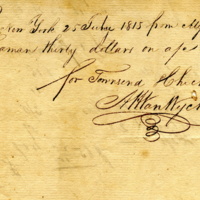 New York 25 July 1815 from My
aman thirty dollars on a/c
for Townsend
A H Van Wyck